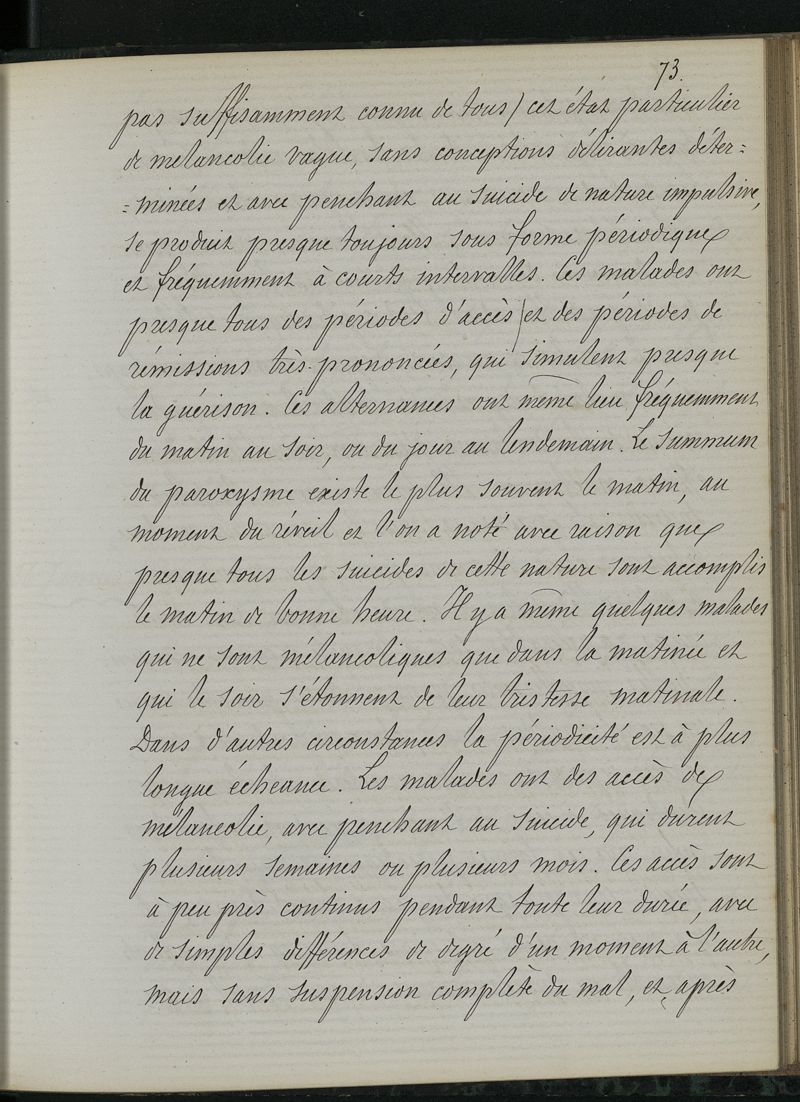 73.
pas suffisamment connu de tous) cet état particulier
de mélancolie vague, sans conceptions délirantes déter=
=minées et avec penchant au suicide de nature impulsive,
se produit presque toujours sous forme périodique
et fréquemment à courts intervalles. Ces malades ont
presque tous des périodes d'accès et des périodes de
rémissions très prononcées, qui simulent presque
la guérison. Ces alternances ont même lieu fréquemment
du matin au soir, ou du jour au lendemain. Le summum
du paroxysme existe le plus souvent le matin, au
moment du réveil et l'on a noté avec raison que
presque tous les suicides de cette nature sont accomplis
le matin de bonne heure. Il y a même quelques malades
qui ne sont mélancoliques que dans la matinée et
qui le soir s'étonnent de leur tristesse matinale.
Dans d'autres circonstances la périodicité est à plus
longue écheance. Les malades ont des accès de
mélancolie, avec penchant au suicide, qui durent
plusieurs semaines ou plusieurs mois. Ces accès sont
à peu près continus pendant toute leur durée, avec
de simples différences de degré d'un moment à l'autre,
mais sans suspension complète du mal, et, après